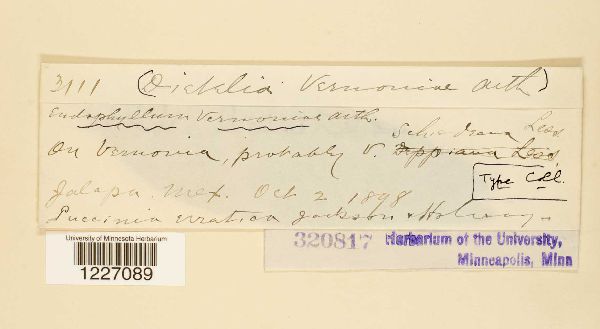 3111 (Dietelia Vernoniae Arth)
Endophyllum Vernoniae Arth.
Schiedeana Less
On Vernonia, probably V. Deppiana Less,
Type Coll.
Jalapa, Mex. Oct 2 1898
Puccinia erratica Jackson & Holway.
University of Minnesota Herbarium
1227089
320817 Herbarium of the University,
Minneapolis, Minn